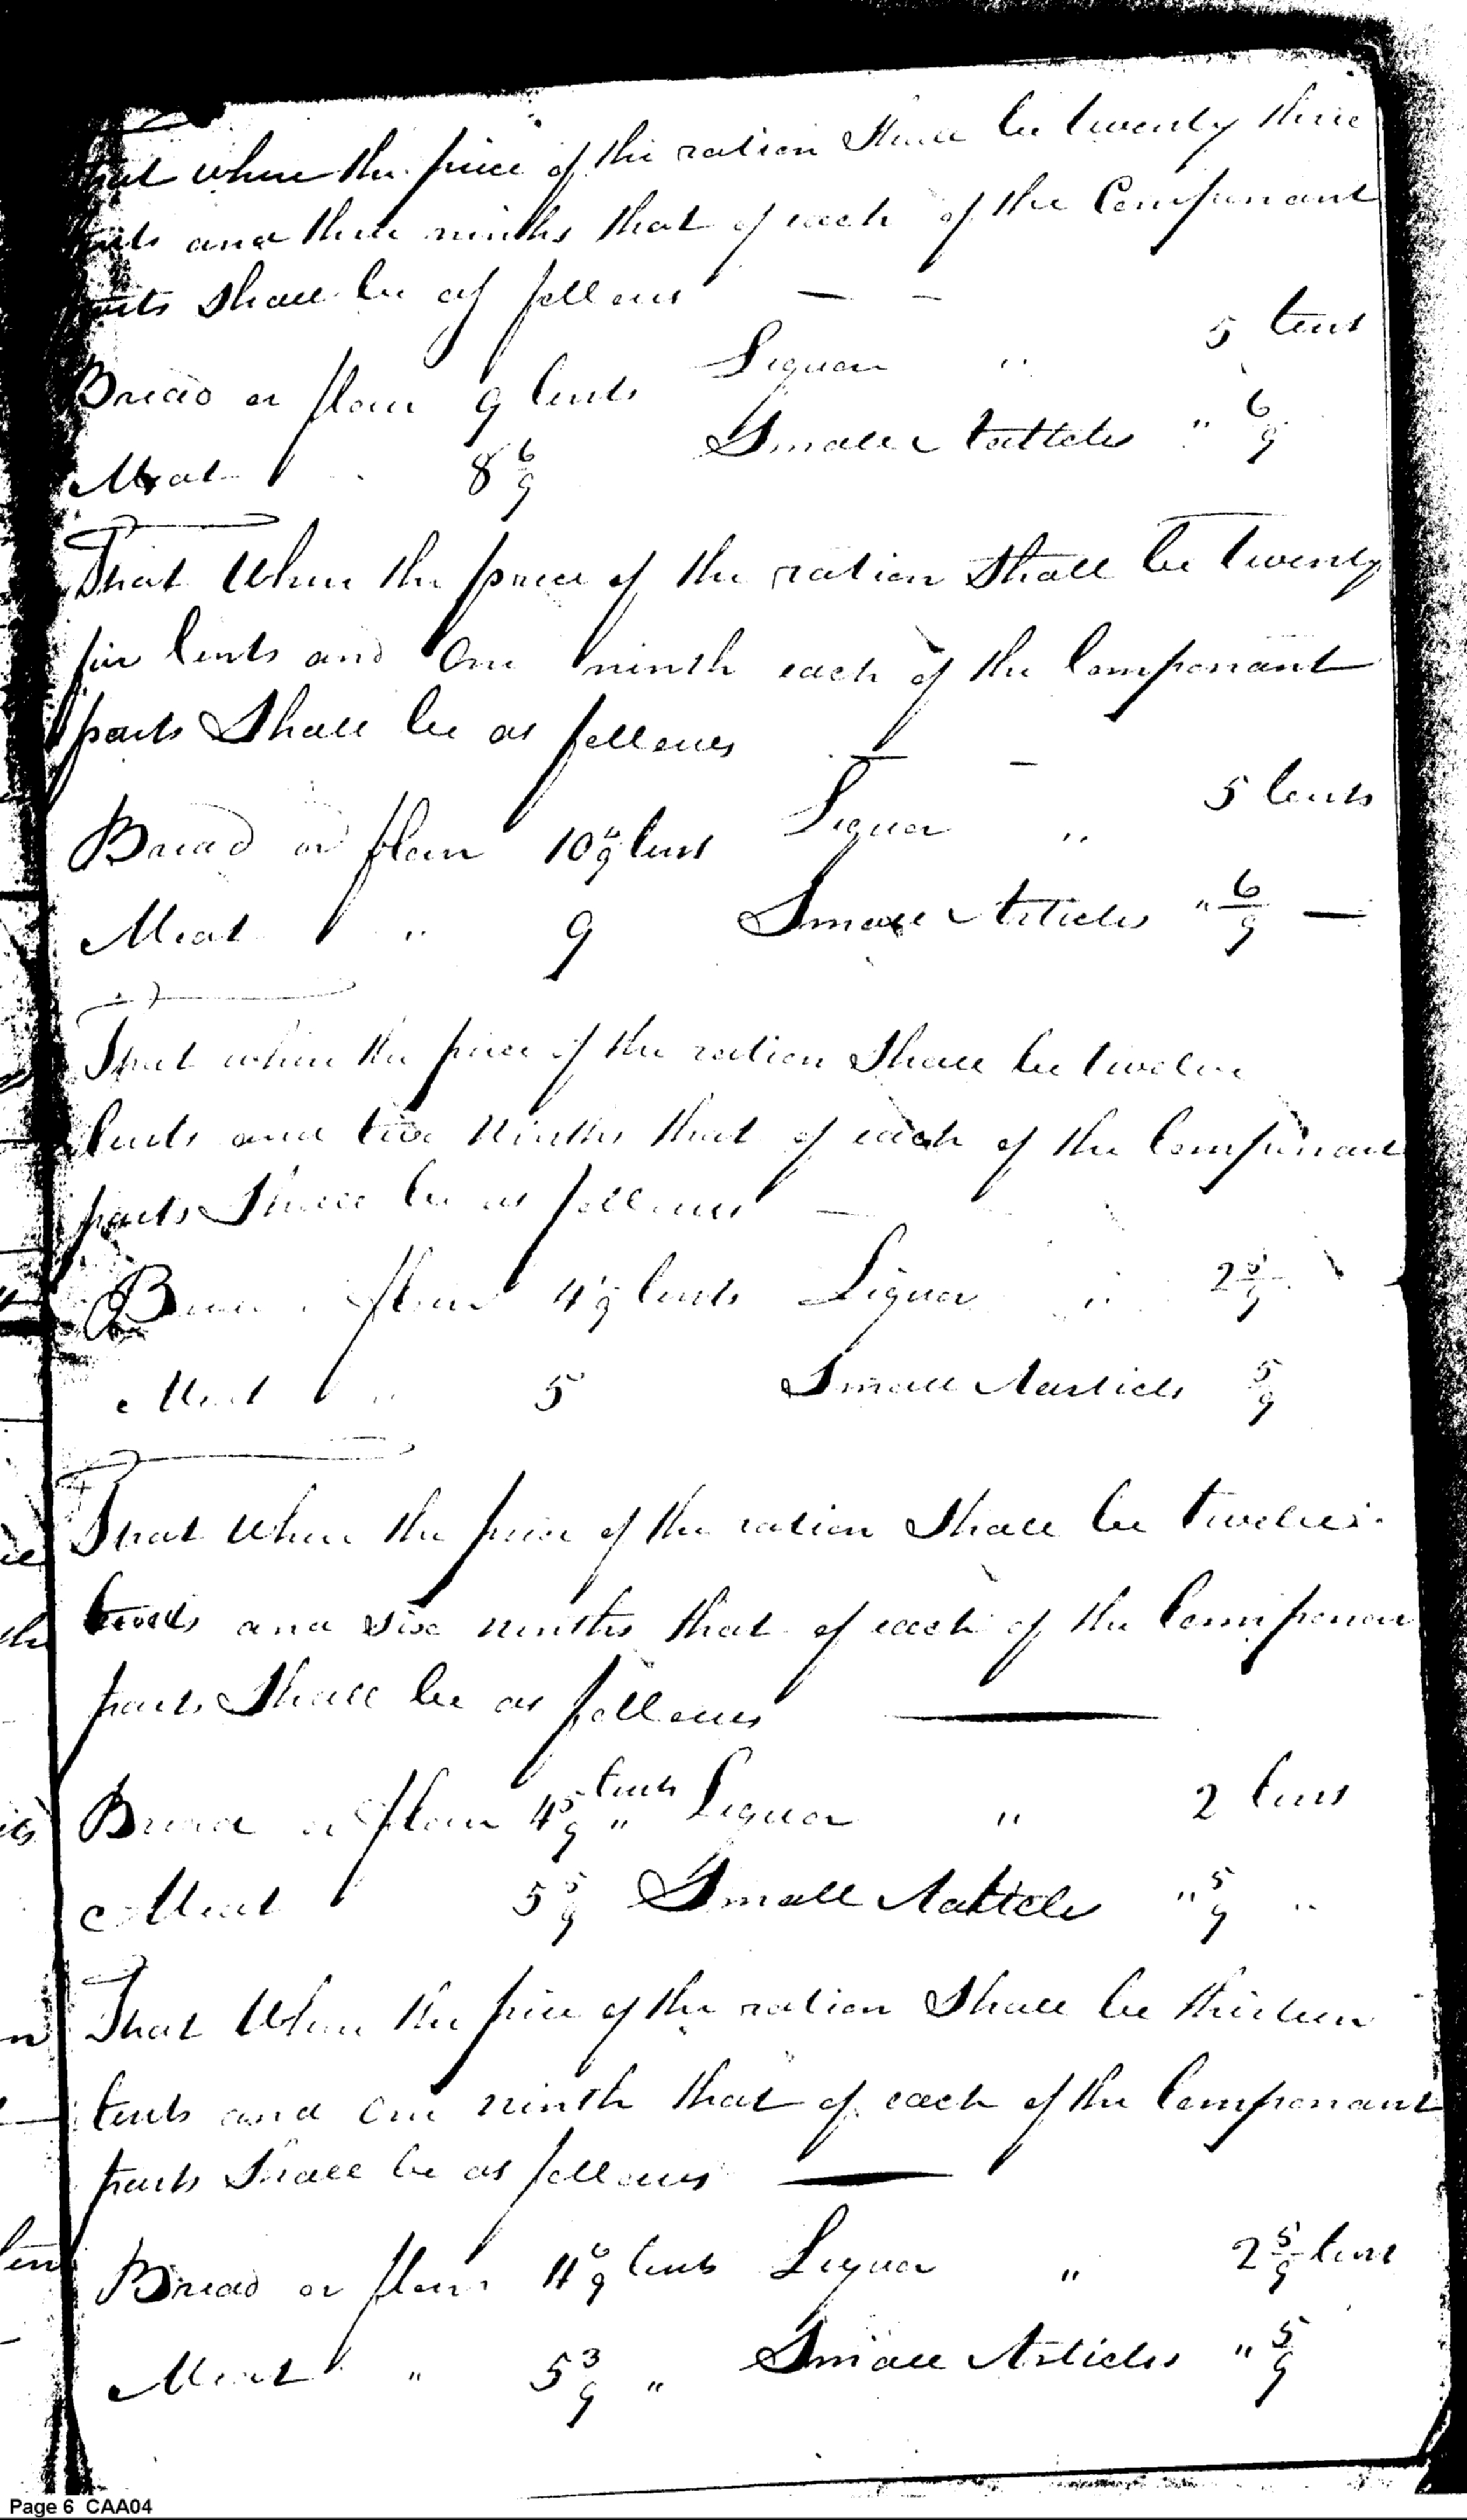 that when the price of the ration Shall be twenty three
and three ninths that of each of the Componant
Shall be as follows — —
Bread or flour 9 Cents Liquor " 5 Cents
Meat " 8 6/9 Small Articles " 6/9
That When the price of the ration Shall be twenty
five Cents and One ninth each of the Componant
parts Shall be as follows — —
Bread or flour 10 4/9 Cents Liquor " 5 Cents
Meat " 9 Small Articles " 6/9 —
That when the price of the ration Shall be twelve
Cents and two Ninths that of each of the Componant
parts Shall be as follows —
flour 4 1/9 Cents Liquor " 2 5/9
Meat " 5 Small Aarticls 5/9
That When the price of the ration Shall be twelve
Cents and six ninths that of each of the Componan
parts Shall be as follows —
Bread or flour 4 5/9 " Cents Liquor " 2 Cents
Meat 5 5/9 Small Aatticls " 5/9 "
That When the price of the ration Shall be thirteen
Cents and One ninth that of each of the Componant
parts Shall be as follows —
Bread or flour 4 6/9 Cents Liquor " 2 5/9 Cents
Meat " 5 3/9 " Small Articles " 5/9
Page 6 CAA04